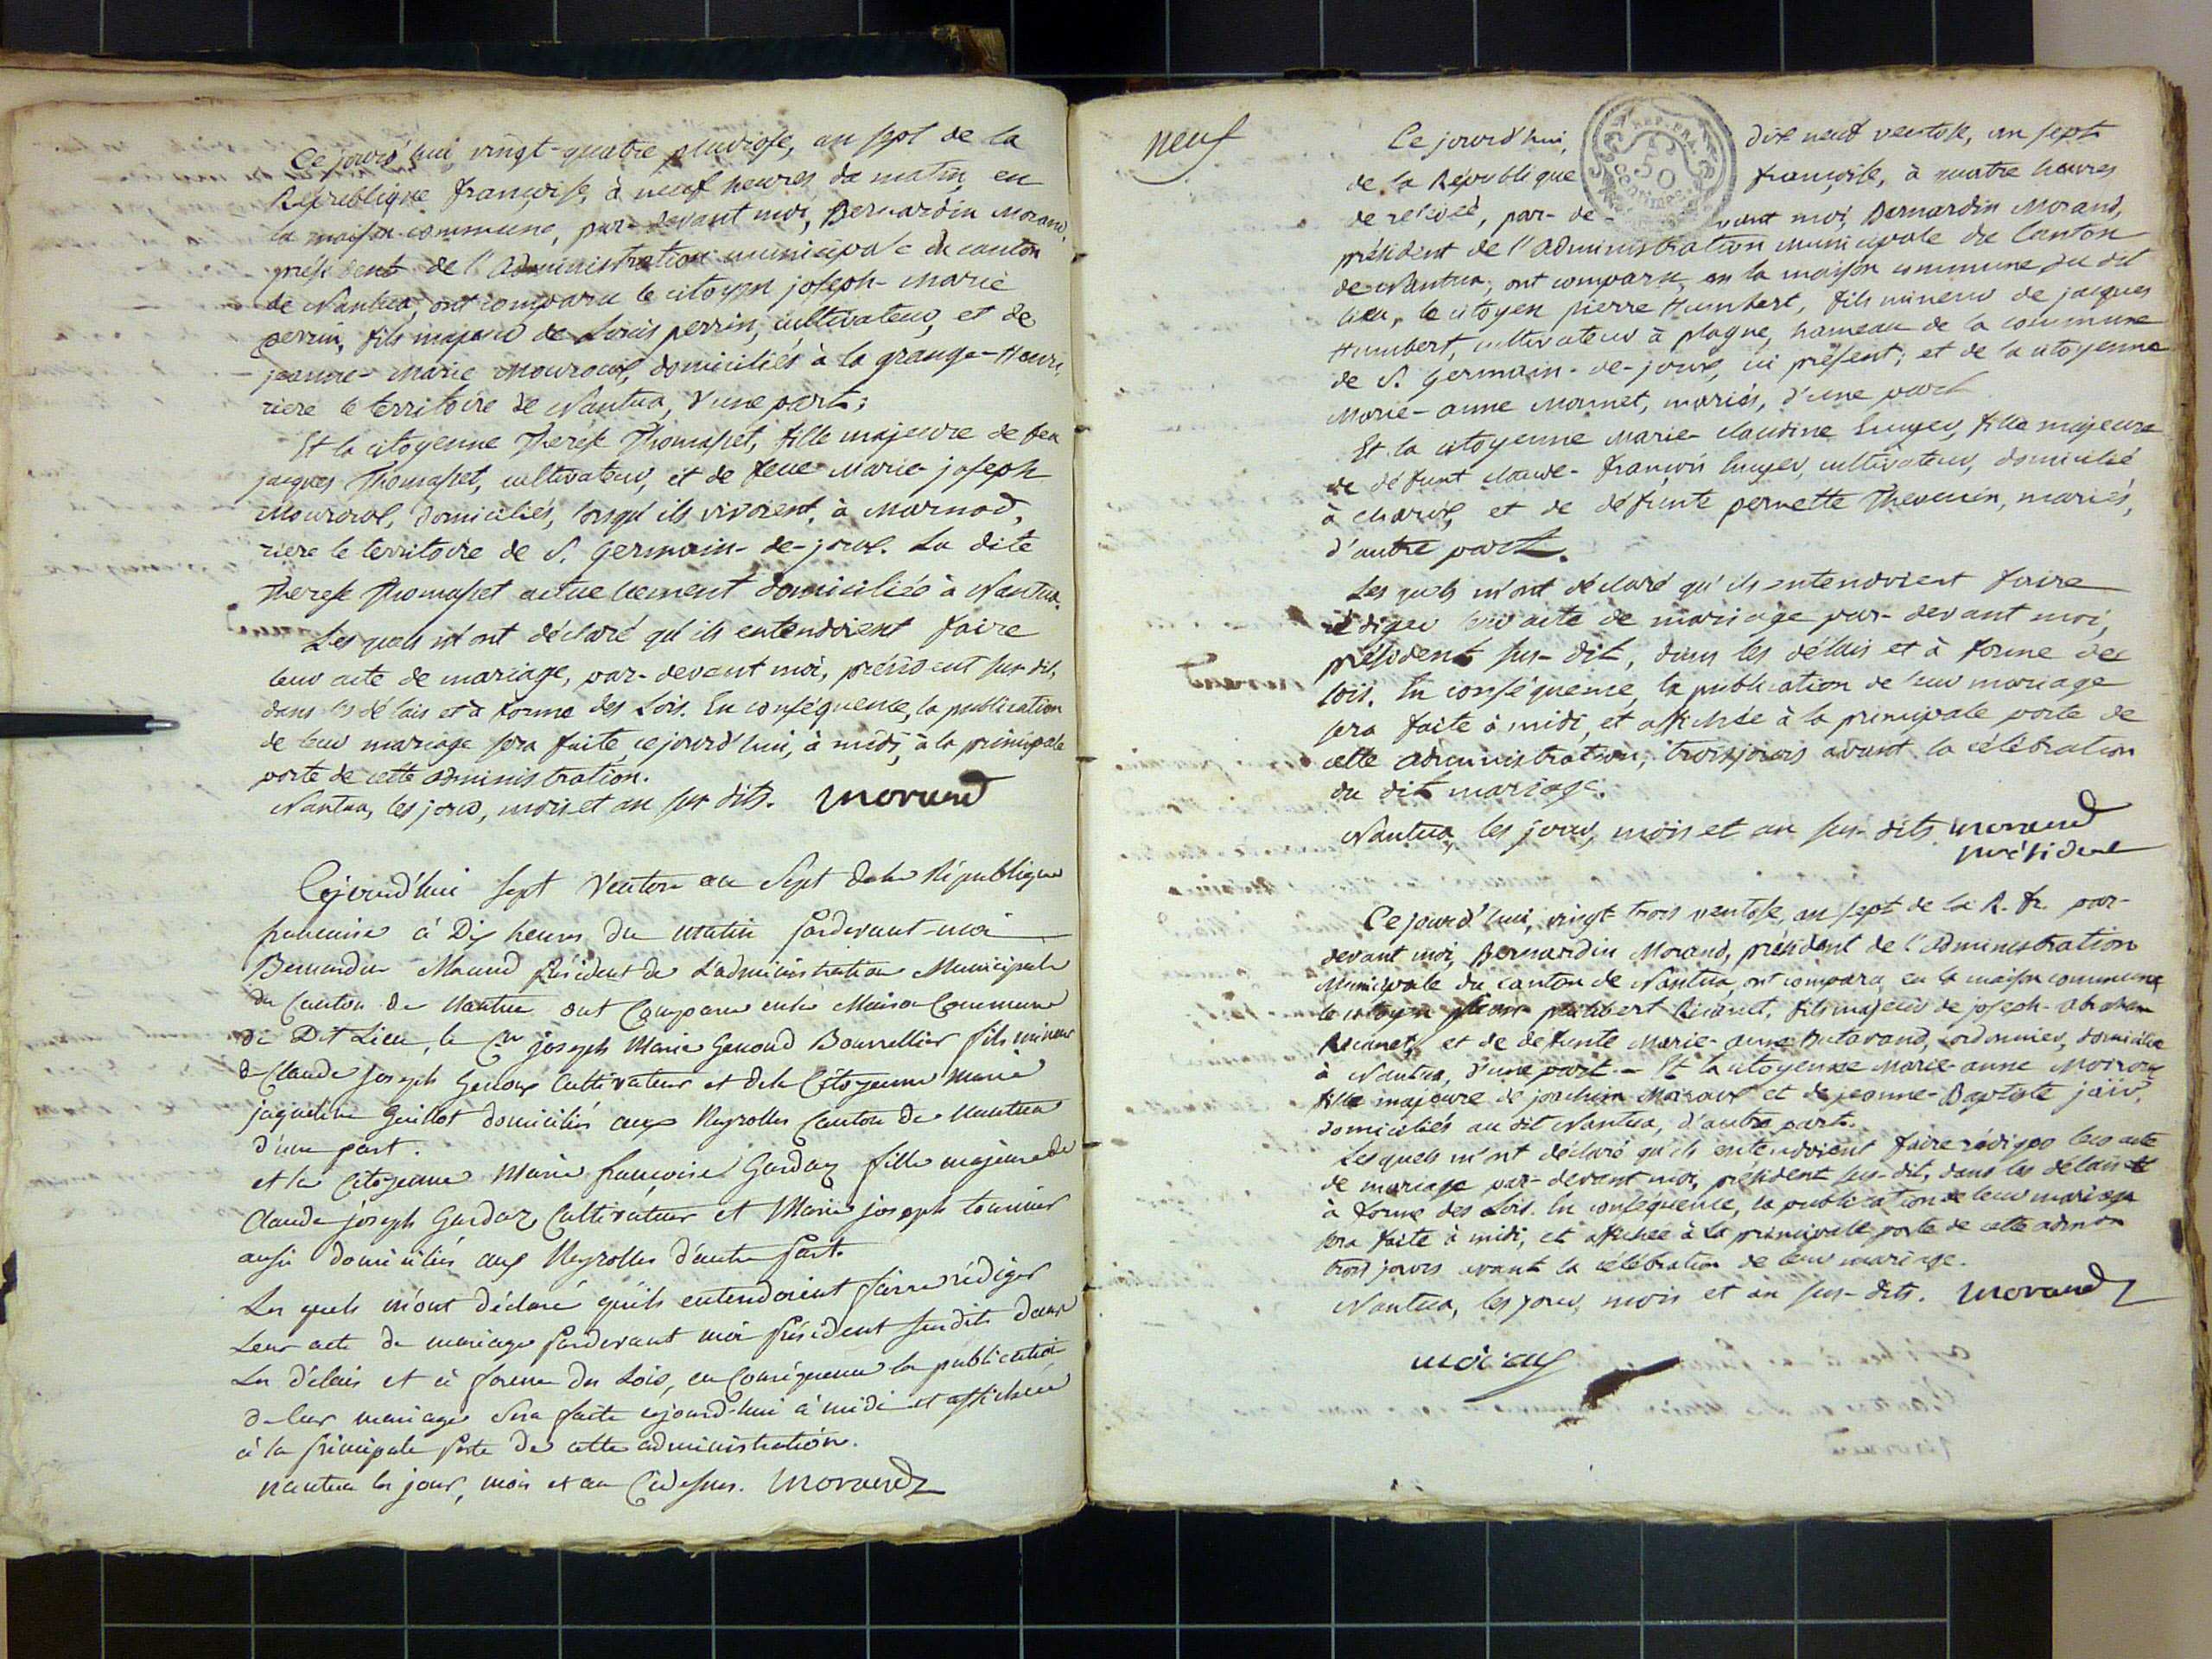 Ce jourd'hui, vingt-quatre pluviose, an sept de la
Republique françoise, à neuf heures du matin, en
la maison commune, par-devant moi, Bernardin Morand,
président de l'administration municipale du canton
de Nantua, ont comparu le citoyen joseph-marie
perrin, fils majeur de Louis perrin, cultivateur, et de
jeanne-marie domiciliés à la grange-
riere le territoire de Nantua, d'une part;
Et la citoyenne Therese Thomasset, fille majeure de feu
jacques Thomasset, cultivateur, et de feue Marie joseph
domiciliés, lorsqu'ils vivoient, à Marnod,
riere le territoire de S. Germain-de-joux. La dite
Therese Thomasset actuellement domiciliée à Nantua.
Les quels m'ont déclaré qu'ils entendoient faire
leur acte de mariage, par-devant moi, président sus-dit,
dans les délais et à forme des Lois. En conséquence, la publication
de leur mariage sera faite, ce jourd'hui, à midi, à la principale
porte de cette administration.
Nantua, les jour, mois et an sus dits. Morand
Cejourd'hui sept Ventose an Sept de la République
francaise à Dix heures du matin pardevant-moi
Bernardin Morand président de L'administration Municipale
du Canton de Nantua ont Comparu en la Maison Commune
du Dit Lieu, le Cen joseph Marie Genoud Bourrellier fils mineur
de Claude joseph Genoux Cultivateur et de la Citoyenne Marie
jaqueline Guillot domiciliés aux Neyrolles Canton de Nantua
d'une part.
et la Citoyenne Marie françoise Gardaz fille majeure de
Claude joseph Gardaz Cultivateur et Marie joseph tournier
aussi domiciliés aux Neyrolles d'autre part.
Les quels m'ont Déclaré qu'ils entendoient faire rédiger
Leur acte de mariage pardevant moi président susdit dans
Les délais et à forme des Lois, en Conséquence la publication
de leur mariage sera faite cejourd-hui à midi et affichée
à la principale porte de cette administration.
nantua les jour, mois et an Cidessus. Morand
neuf
Ce jourd'hui, dix neuf ventose, an sept
REP. FRA.
50
centimes
de la République françoise, à quatre heures
de relevée, par-devant moi, Bernardin Morand,
président de l'administration municipale du Canton
de Nantua, ont comparu, en la maison commune du dit
lieu, le citoyen pierre Humbert, fils mineur de jacques
Humbert, cultivateur à plagne, hameau de la commune
de S. Germain-de-joux, ici présent; et de la citoyenne
Marie-anne Monnet, mariés, d'une part
Et la citoyenne Marie-claudine fille majeure
de défunt claude-françois cultivateur, domicilié
à charix, et de défunte pernette Thevenin, mariés,
d'autre part.
Les quels m'ont déclaré qu'ils entendoient faire
rédiger leur acte de mariage par-devant moi,
président sus-dit, dans les délais et à forme des
lois. En conséquence, la publication de leur mariage
sera faite à midi, et affichée à la principale porte de
cette administration, trois jours avant la célébration
du dit mariage.
Nantua, les jour, mois et an sus-dits. Morand
président
Ce jourd'hui, vingt trois ventose, an sept de la R. fr. par-
devant moi, Bernardin Morand, président de l'administration
Municipale du canton de Nantua, ont comparu, en la maison commune,
le citoyen philibert fils majeur de joseph-
et de défunte Marie-anne cordonnier, domicilié
à Nantua, d'une part. - Et la citoyenne Marie-anne Moiroux
fille majeure de joachim Moiroux et de jeanne-Baptiste
domiciliés au dit Nantua, d'autre part.
Les quels m'ont déclaré qu'ils entendoient faire rédiger leur acte
de mariage par-devant moi, président sus-dit, dans les délais et
à forme des Lois. En conséquence, la publication de leur mariage
sera faite à midi, et affichée à la principale porte de cette admon
trois jours avant la célébration de leur mariage.
Nantua, les jour, mois et an sus-dits. Morand